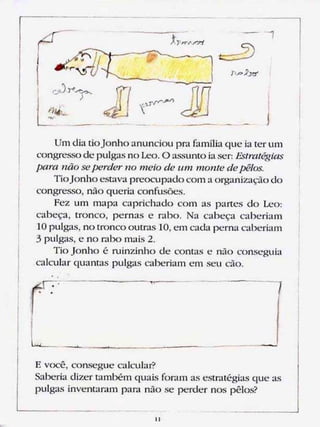 Um dia tio Jonho anunciou pra família que ia ter um
congresso de pulgas no Leo. O assunto ia ser: Estratégias
para não se perder no meio de um monte de pêlos.
Tio Jonho estava preocupado com a organização do
congresso, não queria confusões.
Fez um mapa caprichado com as partes do Leo:
cabeça, tronco, pernas e rabo. Na cabeça caberiam
10 pulgas, no tronco outras 10, em cada perna caberiam
3 pulgas, e no rabo mais 2.
Tio Jonho é ruinzinho de contas e não conseguia
calcular quantas pulgas caberiam em seu cão.
E você, consegue calcular?
Saberia dizer também quais foram as estratégias que as
pulgas inventaram para não se perder nos pêlos?
11